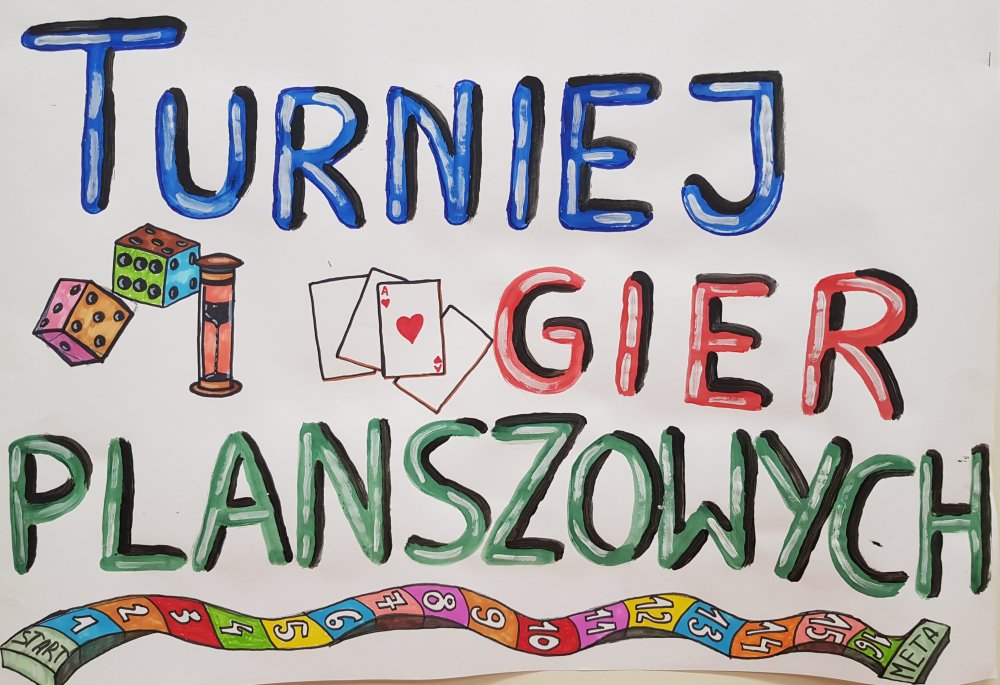 TURNIEJ
A
A
GIER
PLANSZOWYCH
START 1 2 3 4 5 6 7 8 9 10 11 12 13 14 15 16 META